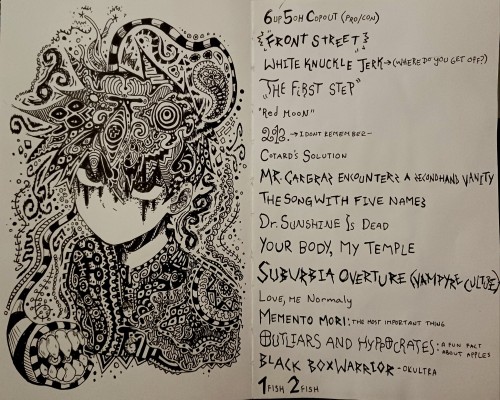 6up 5oh Copout (pro/con)
"Front Street"
White Knuckle Jerk→(where do you get off?)
"The First Step"
"Red Moon"
2012.→I dont remember-
Cotard's Solution
Mr. Capgras Encounters a Secondhand Vanity
The Song With Five Names
Dr. Sunshine Is Dead
Your Body, My Temple
Suburbia Overture (Vampyre Culture)
Love, Me Normaly
Memento Mori: the most important thing
Outliars and Hyppocrates: a fun fact
about apples
Black Box Warrior-Okultra
1 fish 2 fish